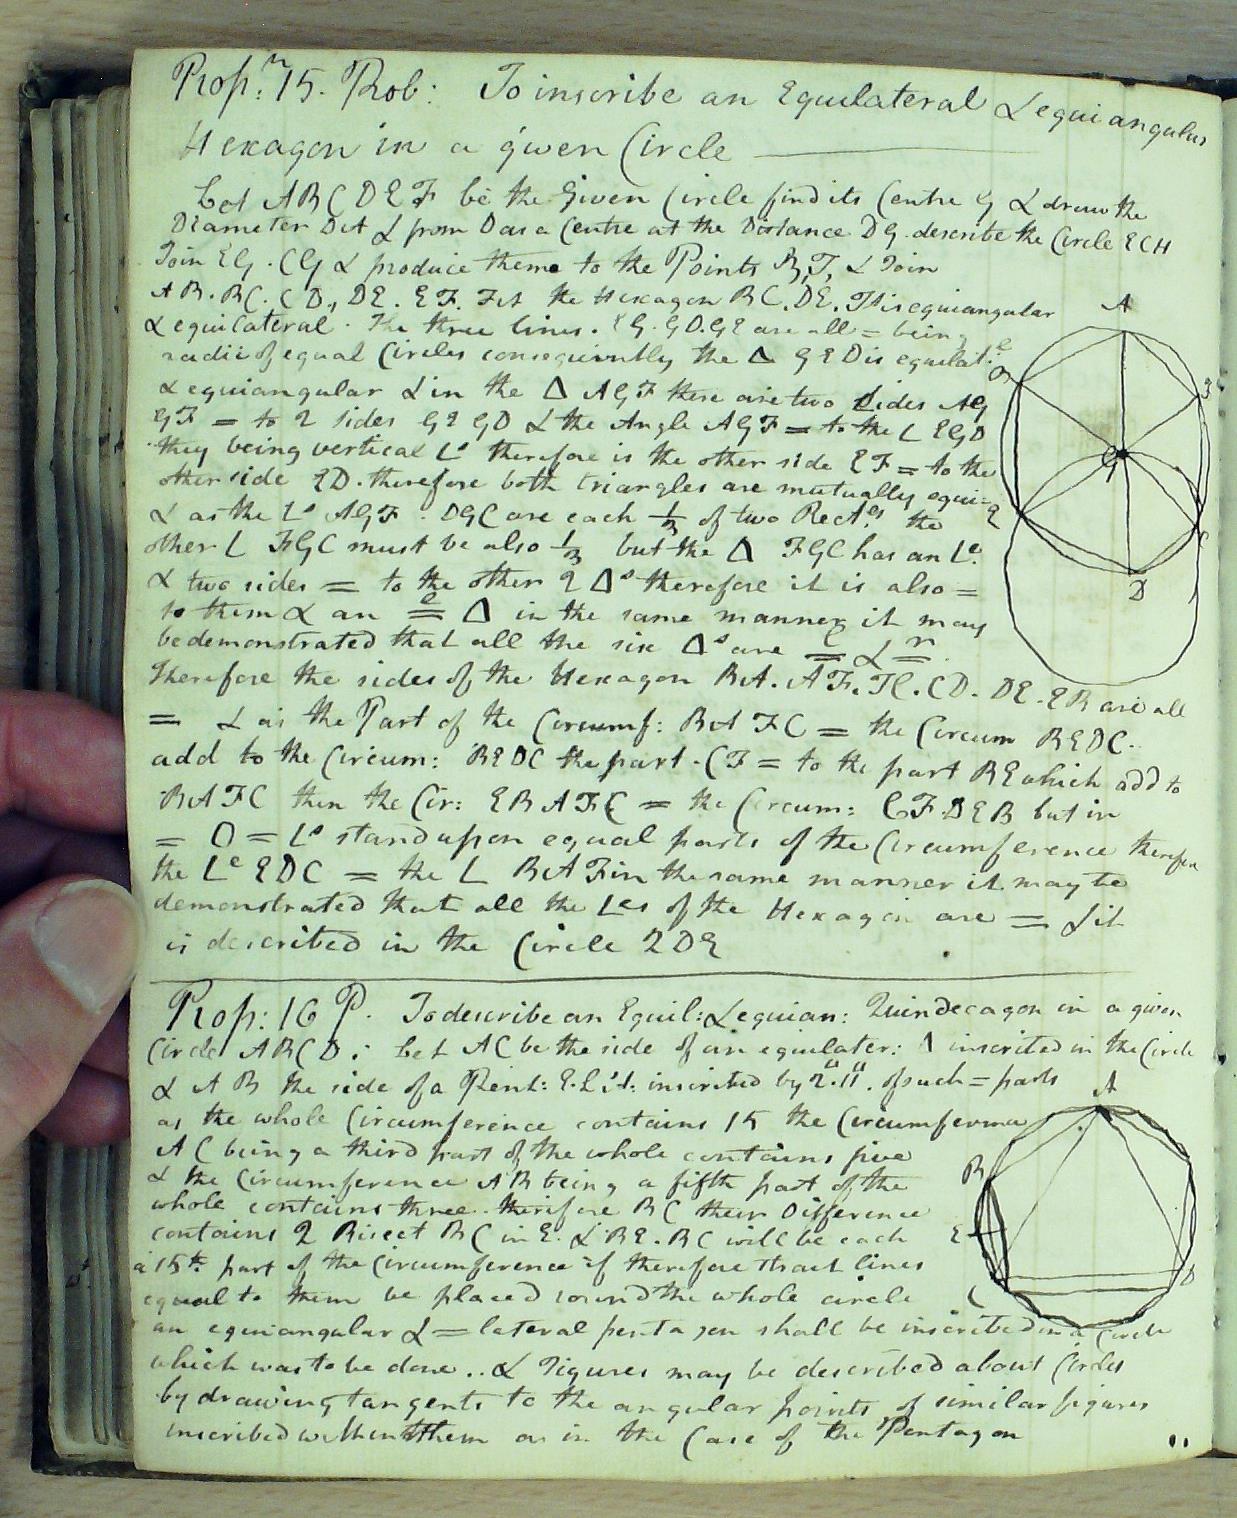 Prop:n 15. Prob: To inscribe an Equilateral & equiangular
Hexagon in a given Circle
Let ABCDEF be the Given Circle find its Centre G & draw the
Diameter DA & from D as a Centre at the Distance DG describe the Circle ECH
Join EG. CG & produce them to the Points B, F, & Join
AB. BC. CD, DE. EF. FA the Hexagon BC. DE. F is equiangular
& equilateral. The three lines. EG. GD. GE are all = being
radii of equal Circles consequently the Δ GED is equilat:
& equiangular & in the Δ AGF there are two Sides AG
GF = to 2 sides GE GD & the Angle AGF = to the L EGD
they being vertical Ls therefore is the other side EF = to the
other side ED. therefore both triangles are mutually equi=
& as the Ls AGF. DGC are each 1/3 of two Rect Ls the
other L FGC must be also 1/3 but the Δ FGC has an Le
& two sides = to the other 2 Δs therefore it is also =
to them & an =e Δ in the same manner it may
be demonstrated that all the six Δs are =l & =r.
Therefore the sides of the Hexagon BA. AF. FC. CD. DE. EB are all
= & as the Part of the Circumf: BAFC = the Circum BEDC.
add to the Circum: BEDC the part. CF = to the part BE which add to
BAFC then the Cir: EBAFC = the Circum: CFDEB but in
= O = Ls stand upon equal parts of the Circumference therefore
the Le EDC = the L BAF in the same manner it may be
demonstrated that all the Les of the Hexagon are = & it
is described in the Circle 2DE
A
B
G
E
C
D
Prop: 16 P. To describe an Equil: & equian: Quindecagon in a given
Circle ABCD: Let AC be the side of an equilater: Δ inscribed in the Circle
& AB the side of a Pent: inscribed by 2. 11. of such = parts
as the whole Circumference contains 15 the Circumference
AC being a third part of the whole contains five
& the Circumference AB being a fifth part of the
whole contains three therefore BC their Difference
contains 2 Bisect BC in E. & BE. BC will be each
a 15th part of the Circumference if therefore strait lines
equal to them be placed round the whole circle
an equiangular & = lateral pentagon shall be inscribed in a Circle
which was to be done.. & Figures may be described about Circles
by drawing tangents to the angular points of similar figures
inscribed within them as in the Case of the Pentagon
A
B
E
C
D